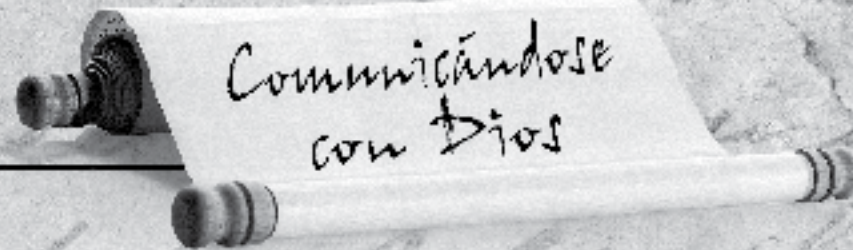 Comunicándose
con Dios